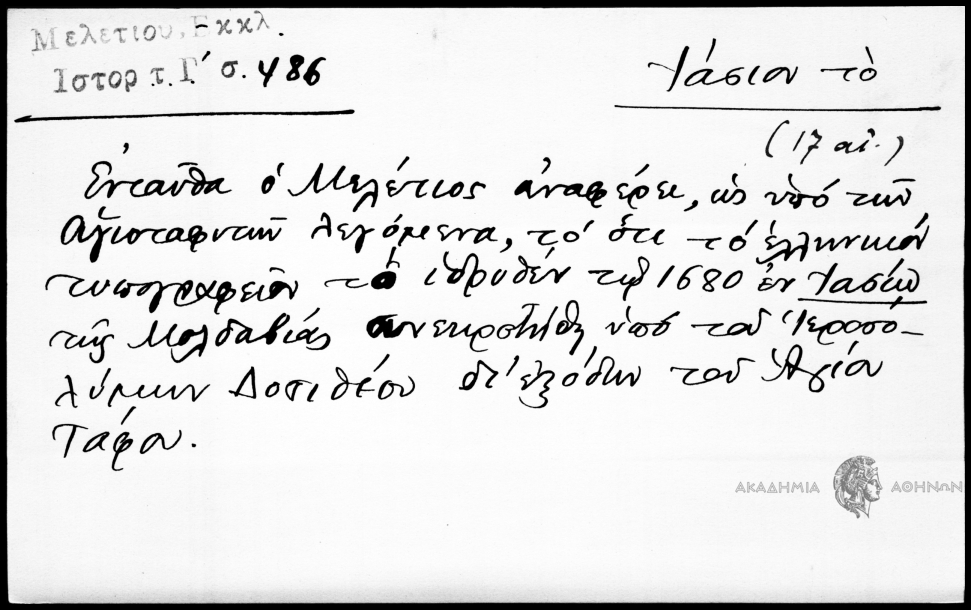 Μελετίου, Εκκλ.
Ιστορ τ. Γ΄ σ. 486
Ἰάσιον τὸ
(17 αἰ.)
Ἐνταῦθα ὁ Μελέτιος ἀναφέρει, ὡς ὑπό τῶν
Ἁγιοταφιτῶν λεγόμενα, τό ὅτι τό ἑλληνικόν
τυπογραφεῖον τό ἱδρυθέν τῷ 1680 ἐν Ἰασίῳ
τῆς Μολδαβίας συνεκροτήθη ὑπό τοῦ Ἱεροσο-
λύμων Δοσιθέου δι' ἐξόδων τοῦ Ἁγίου
Τάφου.
ΑΚΑΔΗΜΙΑ ΑΘΗΝΩΝ